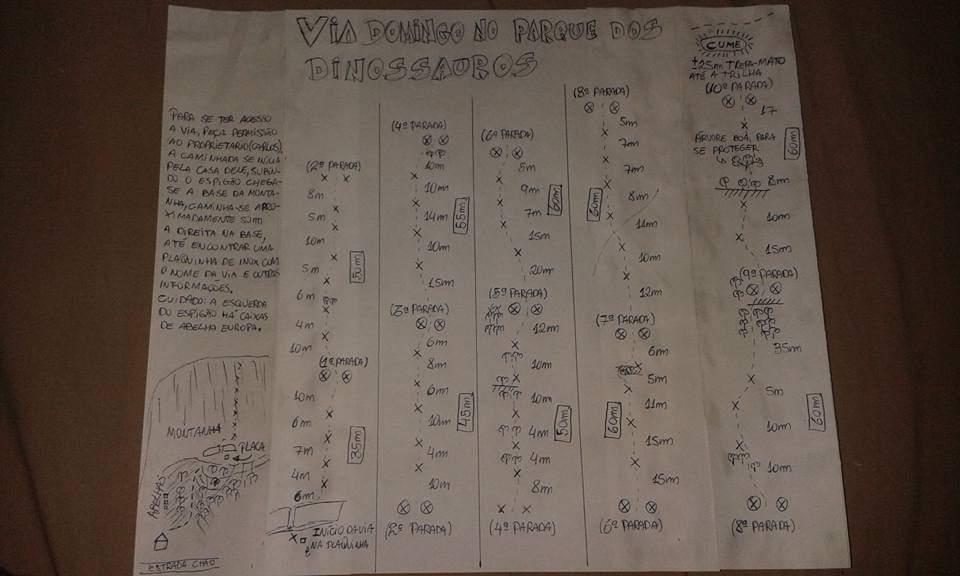 VIA DOMINGO NO PARQUE DOS
DINOSSAUROS
PARA SE TER ACESSO
A VIA, PEÇA PERMISSÃO
AO PROPRIETARIO (CARLOS),
A CAMINHADA SE INICIA
PELA CASA DELE, SUBIN-
DO O ESPIGÃO CHEGA-
SE A BASE DA MONTA-
NHA, CAMINHA-SE APRO-
XIMADAMENTE 50m
A DIREITA NA BASE,
ATÉ ENCONTRAR UMA
PLAQUINHA DE INOX COM
O NOME DA VIA E OUTRAS
INFORMAÇÕES.
CUIDADO: A ESQUERDA
DO ESPIGÃO HÁ CAIXAS
DE ABELHA EUROPA.
MONTANHA
PLACA
ABELHAS
ESTRADA CHÃO
(2ª PARADA)
8m
5m
10m
5m
50m
6m
4m
10m
(1ª PARADA)
10m
6m
35m
7m
4m
6m
INÍCIO DA VIA
NA PLAQUINHA
(4ª PARADA)
10m
10m
14m
55m
10m
15m
(3ª PARADA)
6m
8m
6m
10m
45m
4m
10m
(2ª PARADA)
(6ª PARADA)
8m
9m
60m
7m
15m
20m
(5ª PARADA)
12m
10m
10m
4m
50m
4m
8m
(4ª PARADA)
(8ª PARADA)
5m
7m
7m
8m
60m
11m
10m
12m
(7ª PARADA)
6m
5m
11m
60m
15m
15m
(6ª PARADA)
CUME
±25m TREPA-MATO
ATÉ A TRILHA
(10ª PARADA)
17
60m
ÁRVORE BOA, PARA
SE PROTEGER
8m
10m
15m
(9ª PARADA)
35m
5m
60m
10m
10m
(8ª PARADA)